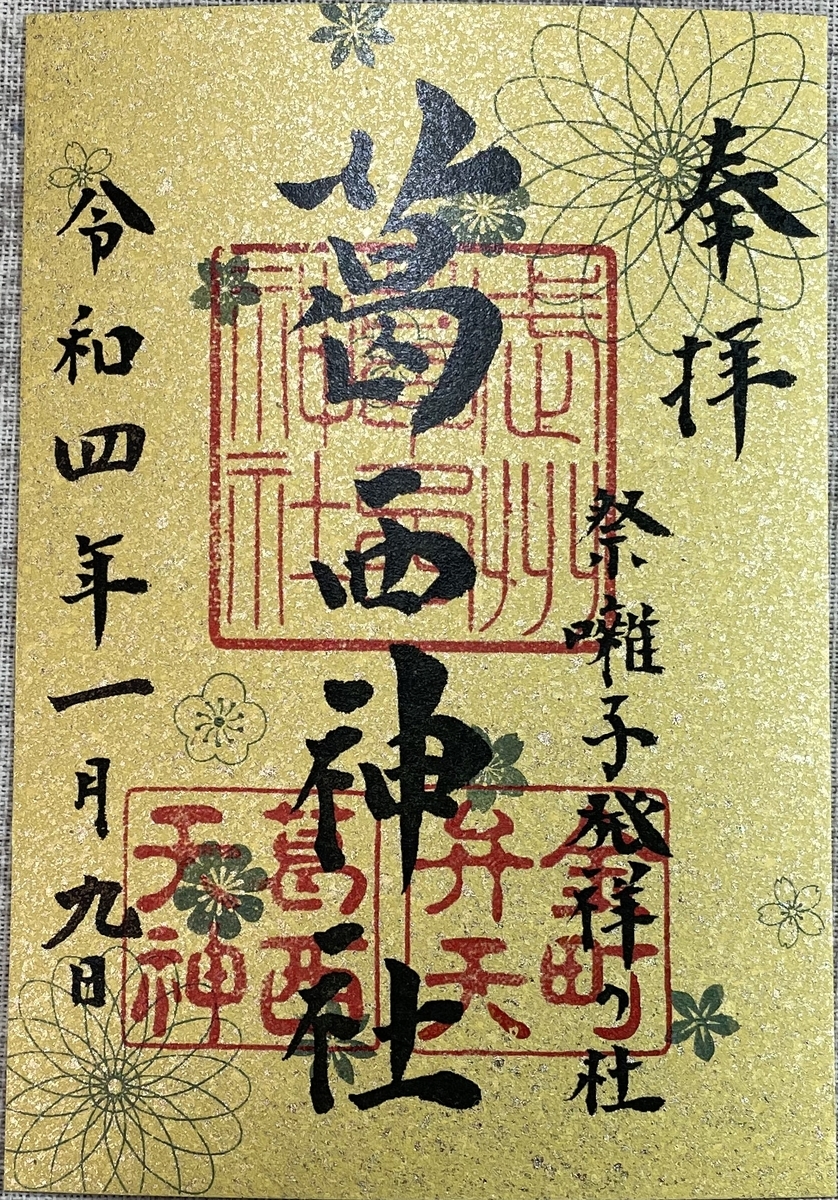 奉拝
祭囃子発祥の杜
葛西神社
令和四年一月九日
武州葛西神社
金町弁天
葛西天神